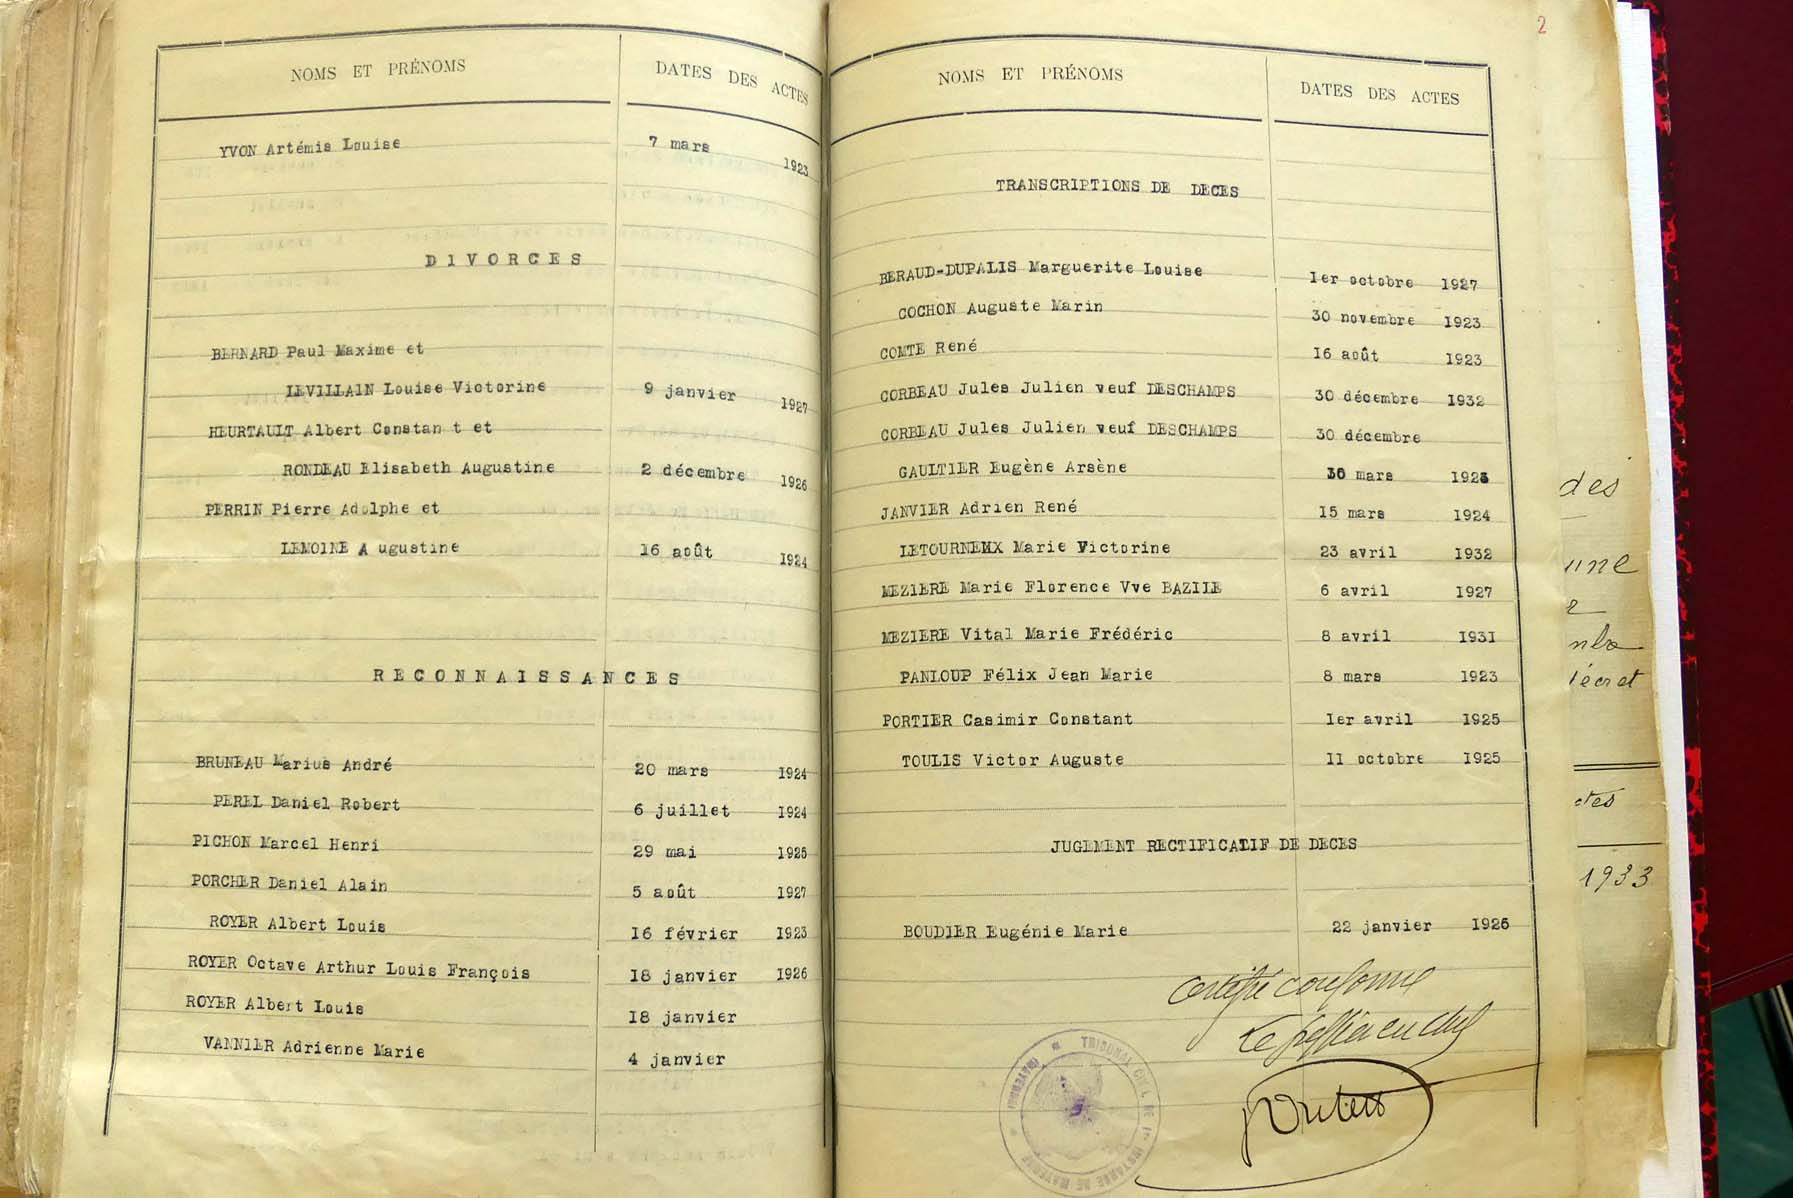 NOMS ET PRÉNOMS DATES DES ACTES
YVON Artémis Louise 7 mars 1923
DIVORCES
BERNARD Paul Maxime et
LEVILLAIN Louise Victorine 9 janvier 1927
HEURTAULT Albert Constan t et
RONDEAU Elisabeth Augustine 2 décembre 1926
PERRIN Pierre Adolphe et
LEMOINE A ugustine 16 août 1924
RECONNAISSANCES
BRUNEAU Marius André 20 mars 1924
PEREL Daniel Robert 6 juillet 1924
PICHON Marcel Henri 29 mai 1925
PORCHER Daniel Alain 5 août 1927
ROYER Albert Louis 16 février 1923
ROYER Octave Arthur Louis François 18 janvier 1926
ROYER Albert Louis 18 janvier
VANNIER Adrienne Marie 4 janvier
2
NOMS ET PRÉNOMS DATES DES ACTES
TRANSCRIPTIONS DE DECES
BERAUD-DUPALIS Marguerite Louise 1er octobre 1927
COCHON Auguste Marin 30 novembre 1923
COMTE René 16 août 1923
CORBEAU Jules Julien veuf DESCHAMPS 30 décembre 1932
CORBEAU Jules Julien veuf DESCHAMPS 30 décembre
GAULTIER Eugène Arsène mars
JANVIER Adrien René 15 mars 1924
Marie Victorine 23 avril 1932
MEZIERE Marie Florence Vve BAZILE 6 avril 1927
MEZIERE Vital Marie Frédéric 8 avril 1931
PANLOUP Félix Jean Marie 8 mars 1923
PORTIER Casimir Constant 1er avril 1925
TOULIS Victor Auguste 11 octobre 1925
JUGEMENT RECTIFICATIF DE DECES
BOUDIER Eugénie Marie 22 janvier 1926
certifié conforme
Le greffier en chef
TRIBUNAL CIVIL DE 1re INSTANCE DE MAYENNE * (MAYENNE) *
des
une
écret
ctes
1933